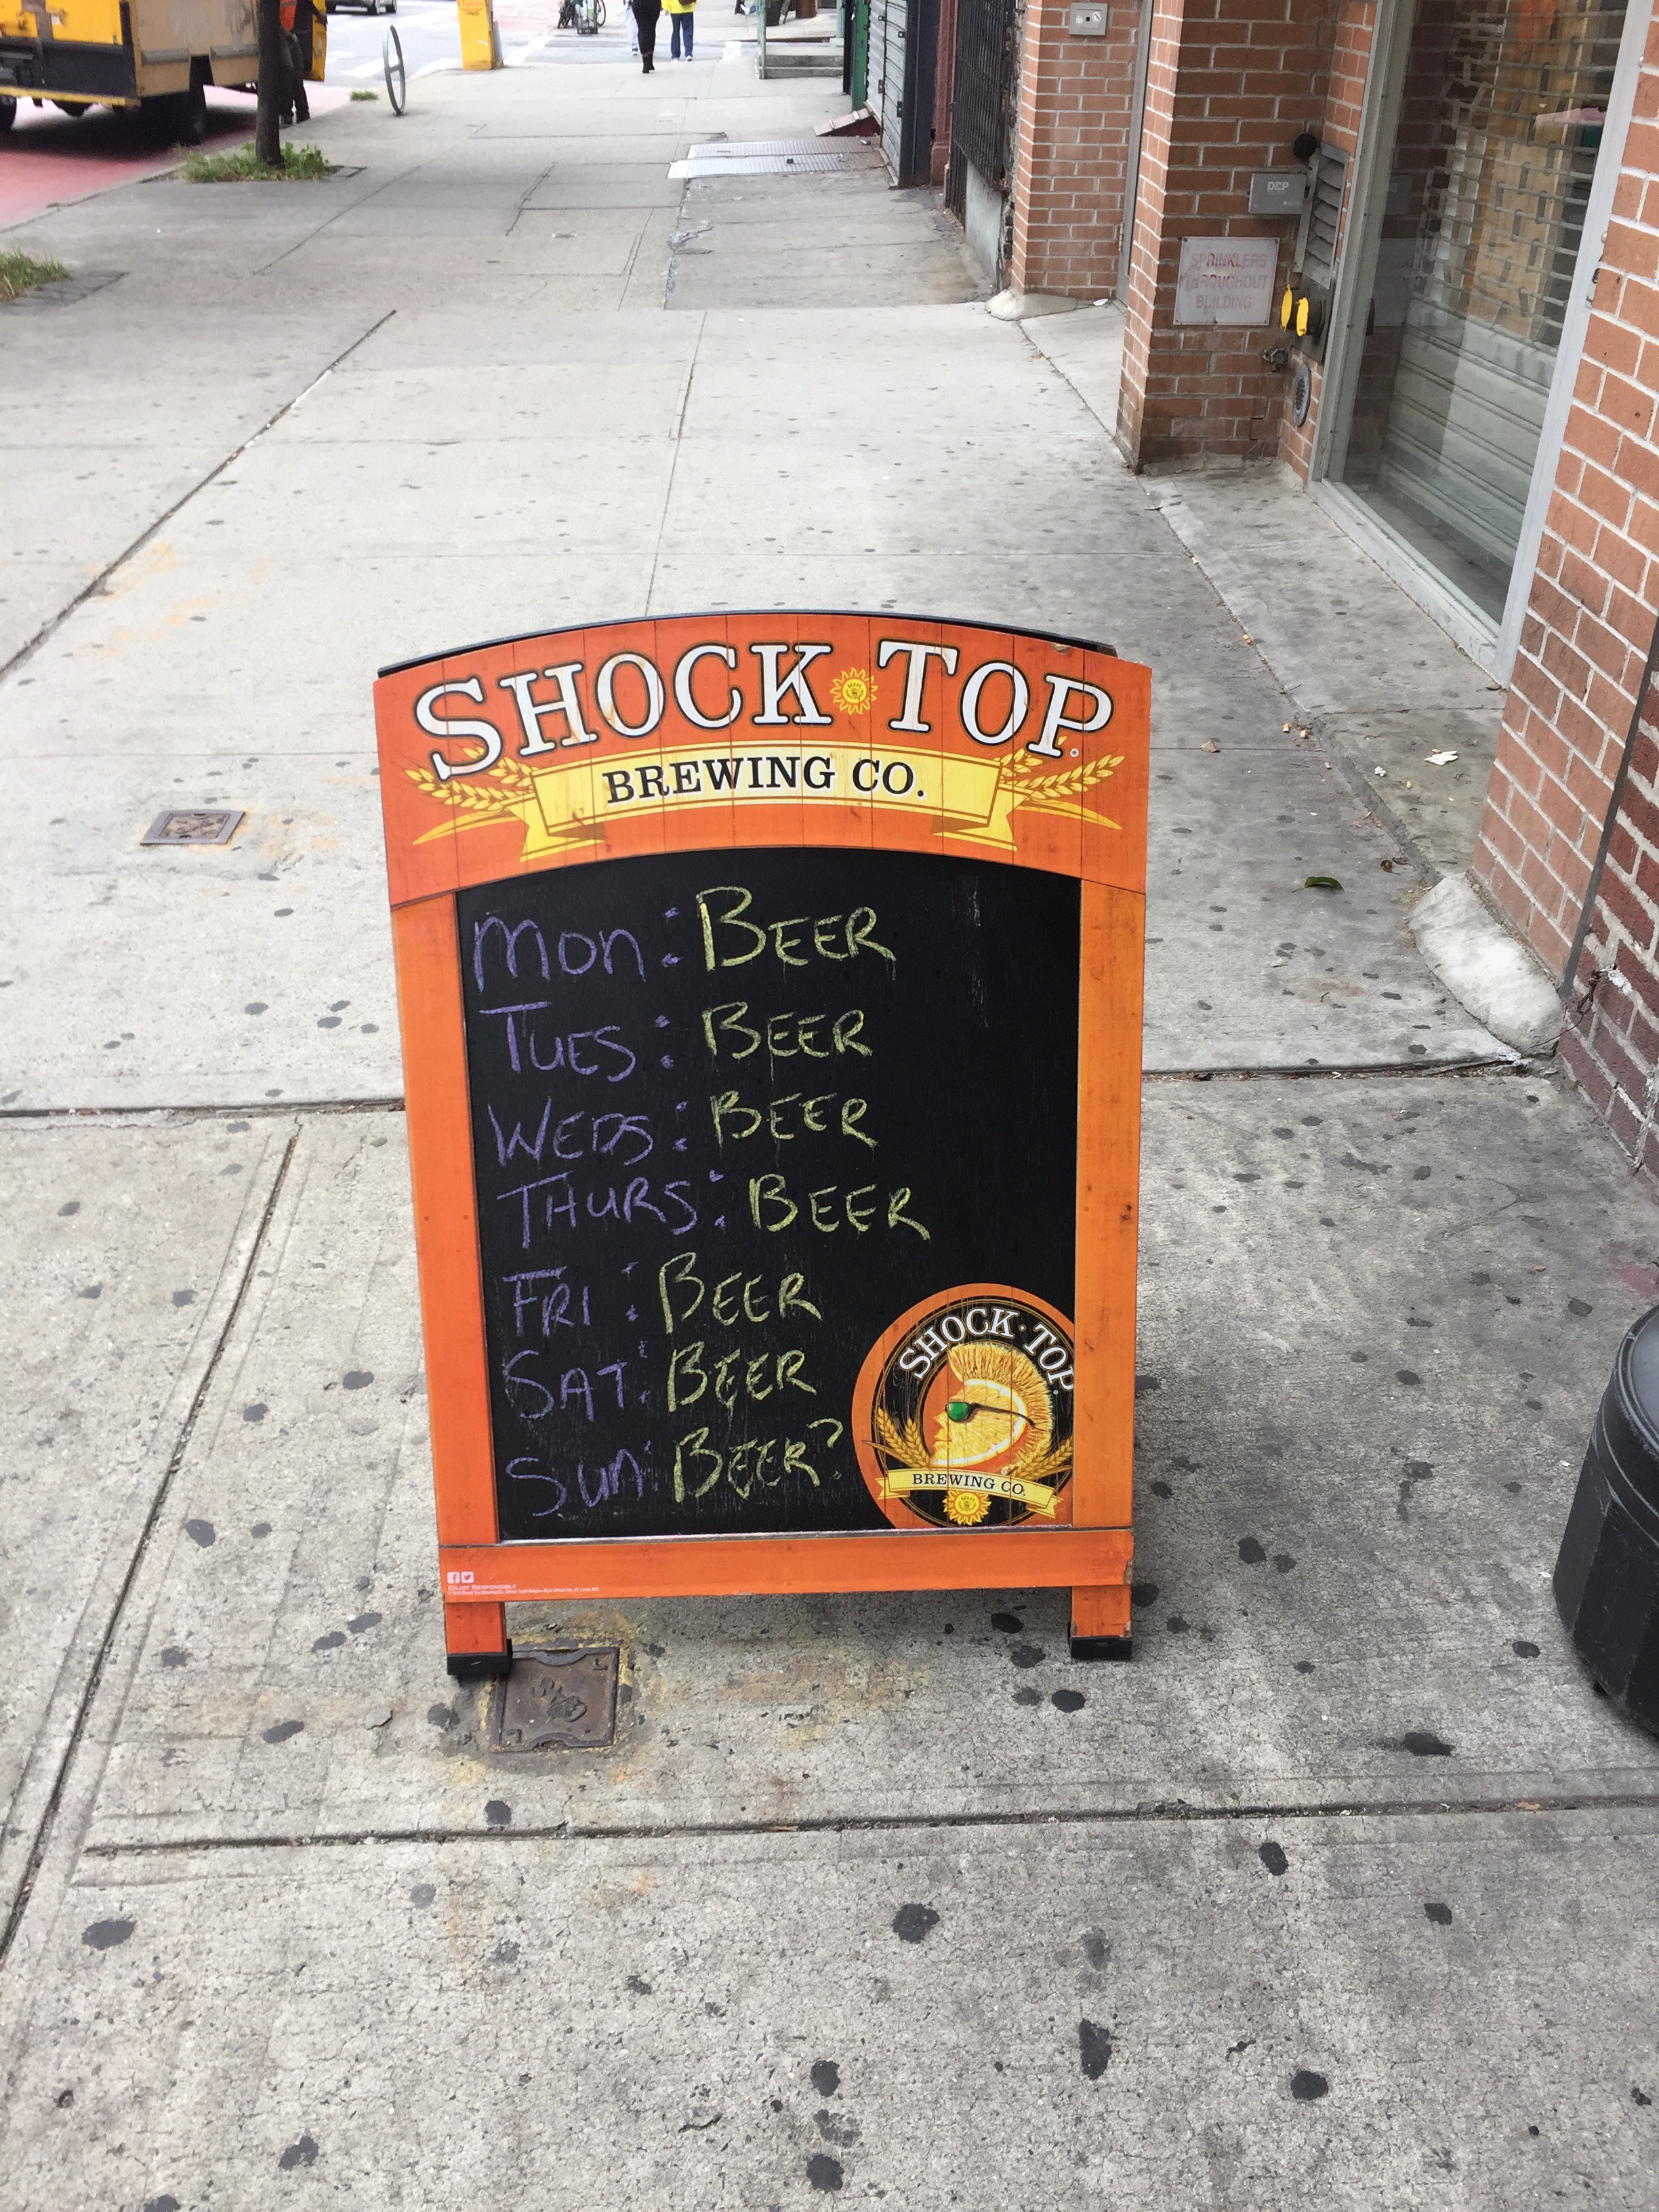 DEP
SPRINKLERS
THROUGHOUT
BUILDING
SHOCK TOP
BREWING CO.
MON: BEER
TUES: BEER
WEDS: BEER
THURS: BEER
FRI: BEER
SAT: BEER
SUN: BEER?
SHOCK·TOP
BREWING CO.
ENJOY RESPONSIBLY